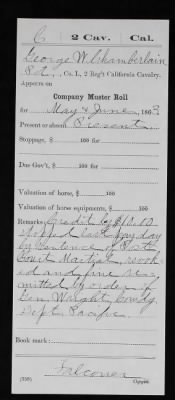 C 2 Cav. Cal.
George W. Chamberlain
Co. L, 2 Reg't California Cavalry.
Appears on
Company Muster Roll
for May & June, 1863
Present or absent Present
Stoppage, $ 100 for
Due Gov't, $ 100 for
Valuation of horse, $ 100
Valuation of horse equipments, $ 100
Remarks: Credit by $10.00
stopped last pay day
by Sentence of
Court Martial,
ed and fine re
mitted by order of
Gen Wright comdg
Dept. Pacific.
Book mark:
Falconer
(359) Copyist.